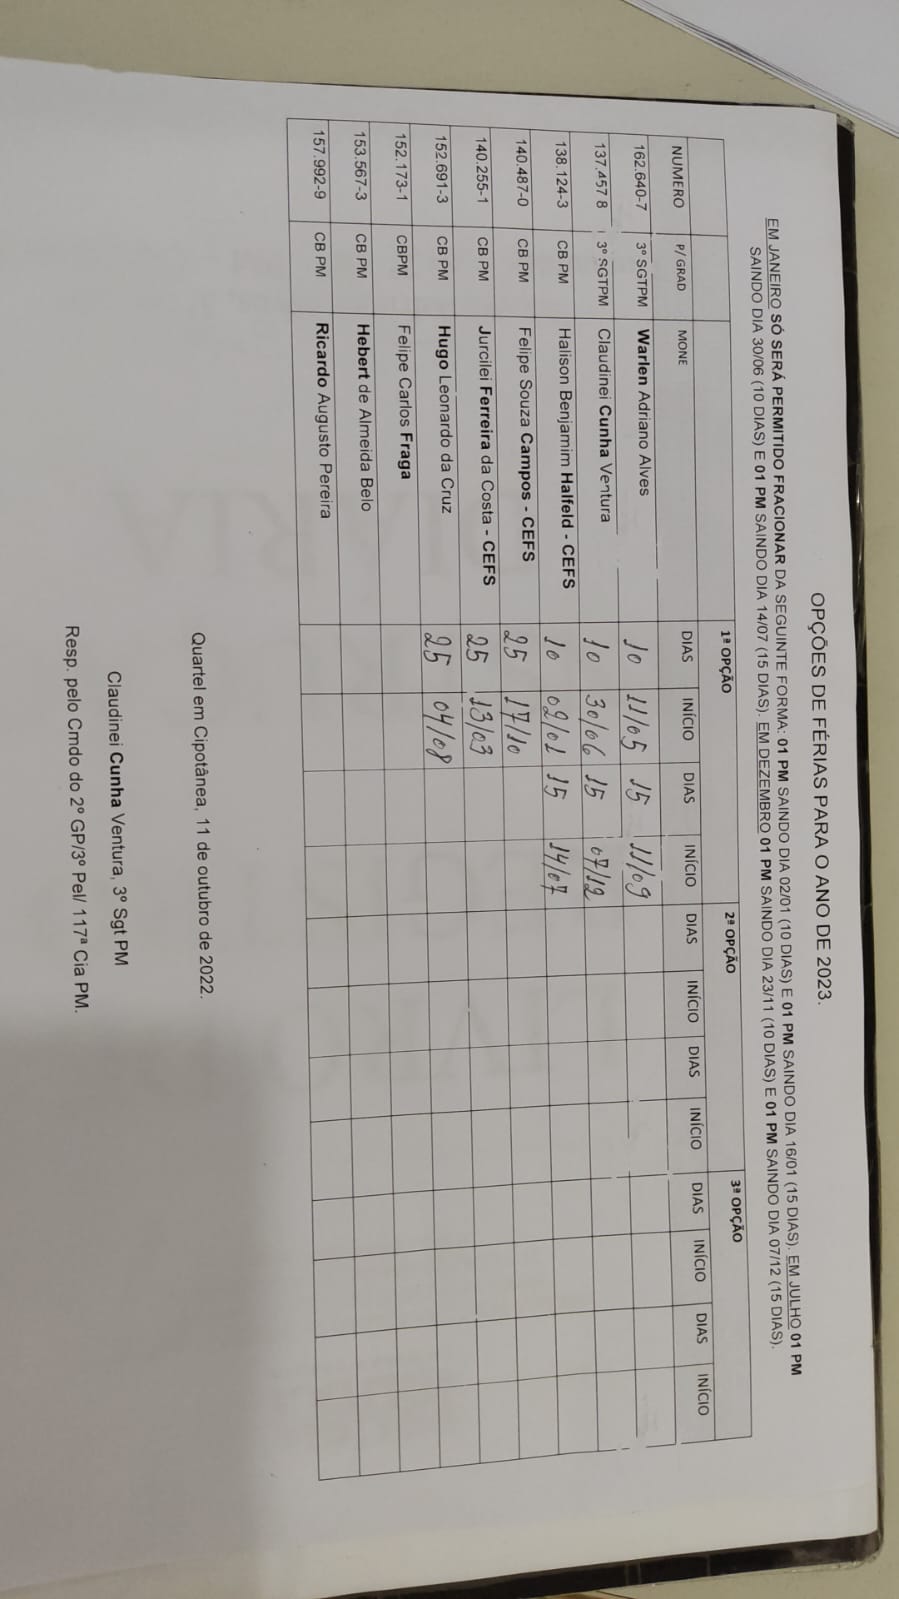 OPÇÕES DE FÉRIAS PARA O ANO DE 2023.
EM JANEIRO SÓ SERÁ PERMITIDO FRACIONAR DA SEGUINTE FORMA: 01 PM SAINDO DIA 02/01 (10 DIAS) E 01 PM SAINDO DIA 16/01 (15 DIAS). EM JULHO 01 PM
SAINDO DIA 30/06 (10 DIAS) E 01 PM SAINDO DIA 14/07 (15 DIAS). EM DEZEMBRO 01 PM SAINDO DIA 23/11 (10 DIAS) E 01 PM SAINDO DIA 07/12 (15 DIAS).
1ª OPÇÃO 2ª OPÇÃO 3ª OPÇÃO
NUMERO P/ GRAD MONE DIAS INÍCIO DIAS INÍCIO DIAS INÍCIO DIAS INÍCIO DIAS INÍCIO DIAS INÍCIO
162.640-7 3º SGTPM Warlen Adriano Alves 10 11/05 15 11/09
137.457 8 3º SGTPM Claudinei Cunha Ventura 10 30/06 15 07/12
138.124-3 CB PM Halison Benjamim Halfeld - CEFS 10 02/01 15 14/07
140.487-0 CB PM Felipe Souza Campos - CEFS 25 17/10
140.255-1 CB PM Jurcilei Ferreira da Costa - CEFS 25 13/03
152.691-3 CB PM Hugo Leonardo da Cruz 25 04/08
152.173-1 CBPM Felipe Carlos Fraga
153.567-3 CB PM Hebert de Almeida Belo
157.992-9 CB PM Ricardo Augusto Pereira
Quartel em Cipotânea, 11 de outubro de 2022.
Claudinei Cunha Ventura, 3º Sgt PM
Resp. pelo Cmdo do 2º GP/3º Pel/ 117ª Cia PM.